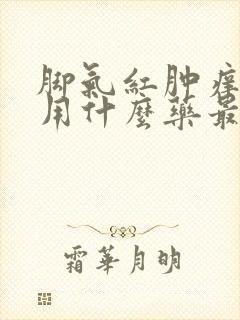 脚氣紅肿痒
用什麼藥最
霜華月明